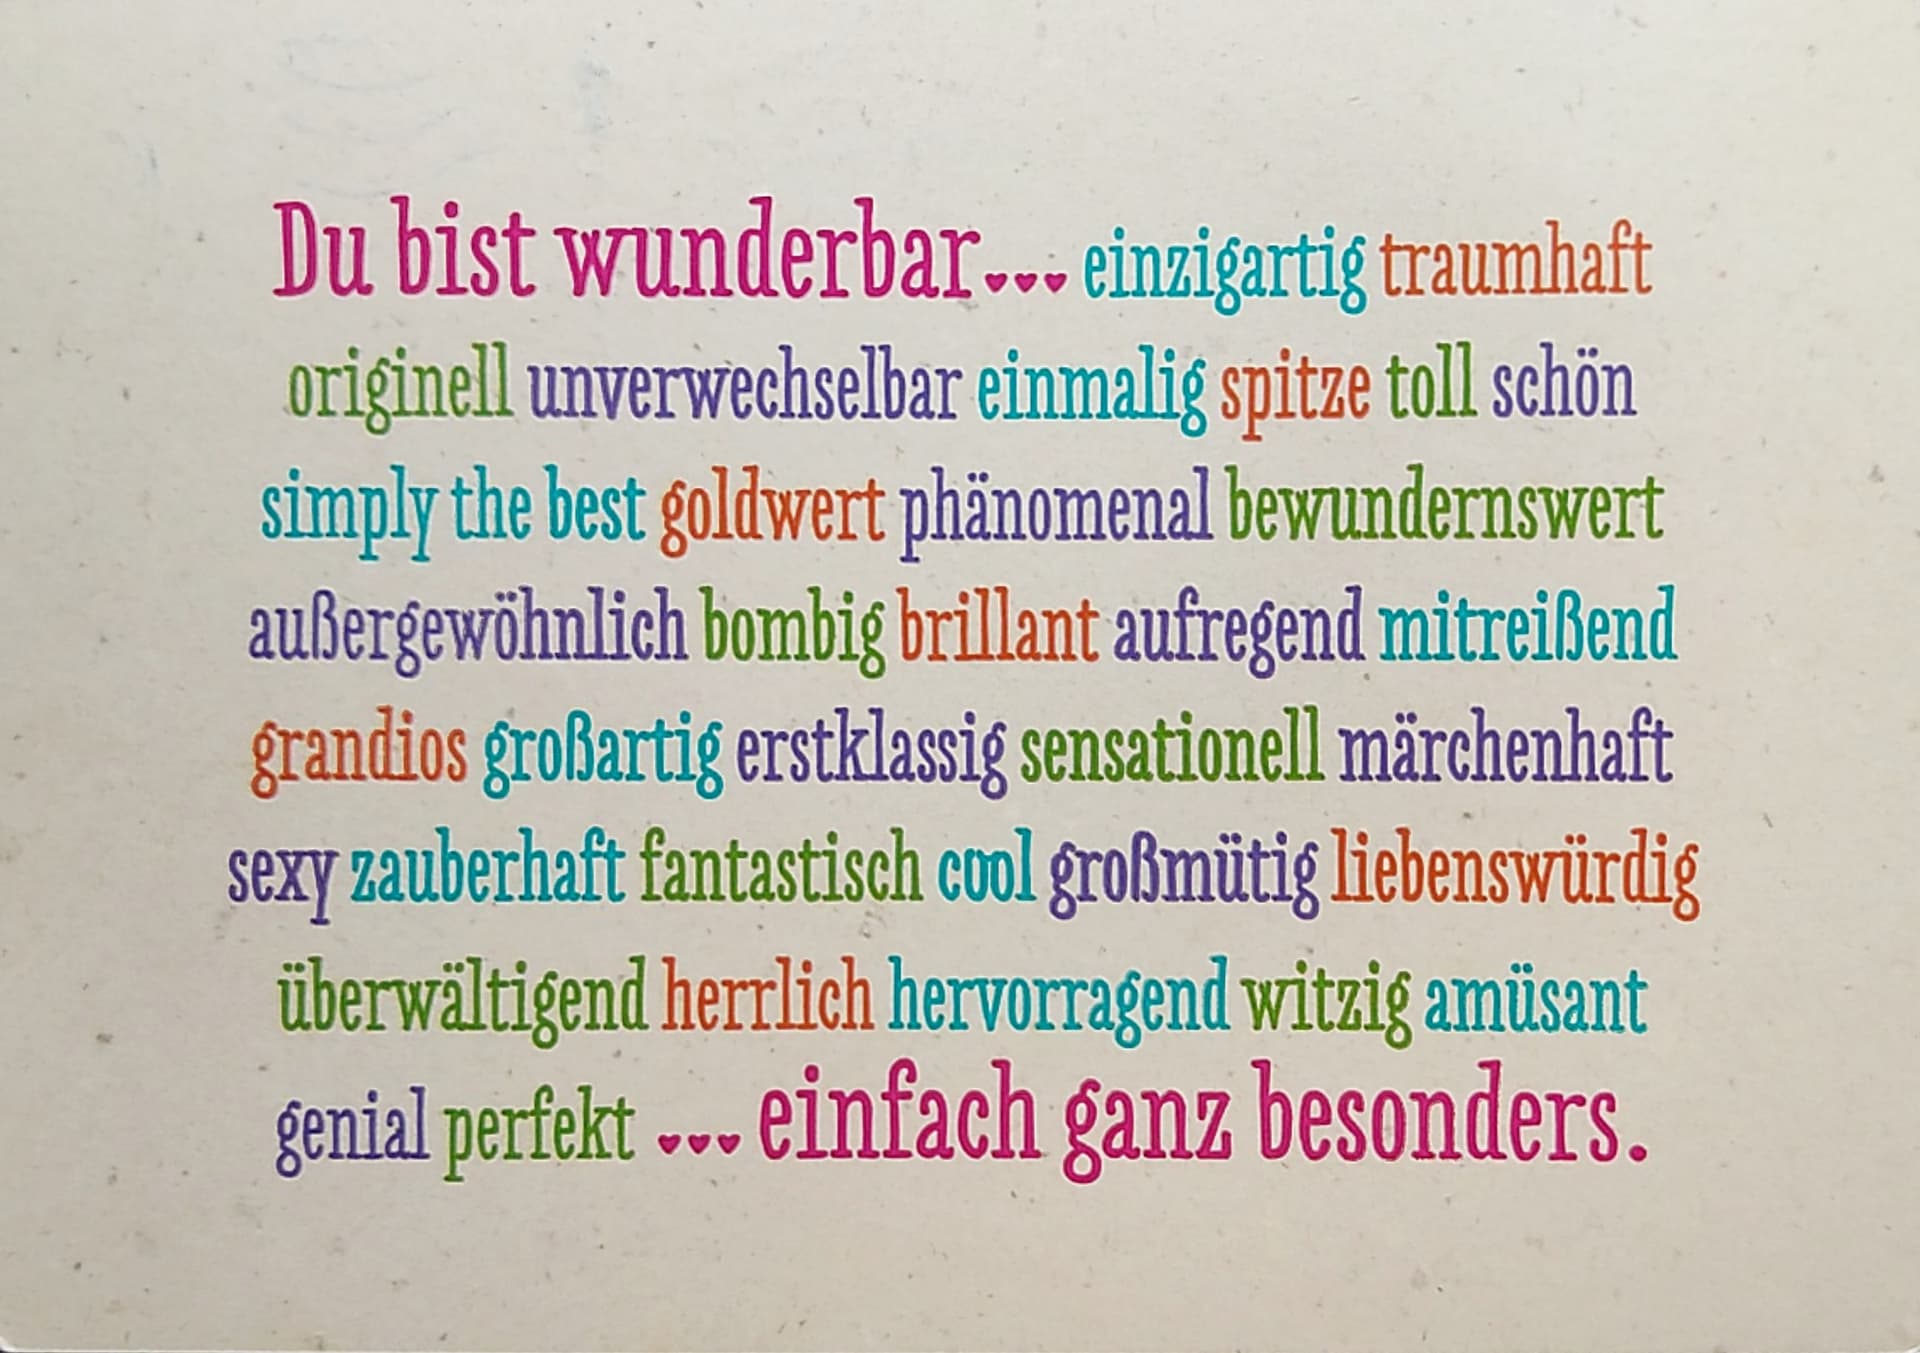 Du bist wunderbar♥♥♥ einzigartig traumhaft
originell unverwechselbar einmalig spitze toll schön
simply the best goldwert phänomenal bewundernswert
außergewöhnlich bombig brillant aufregend mitreißend
grandios großartig erstklassig sensationell märchenhaft
sexy zauberhaft fantastisch cool großmütig liebenswürdig
überwältigend herrlich hervorragend witzig amüsant
genial perfekt ♥♥♥ einfach ganz besonders.